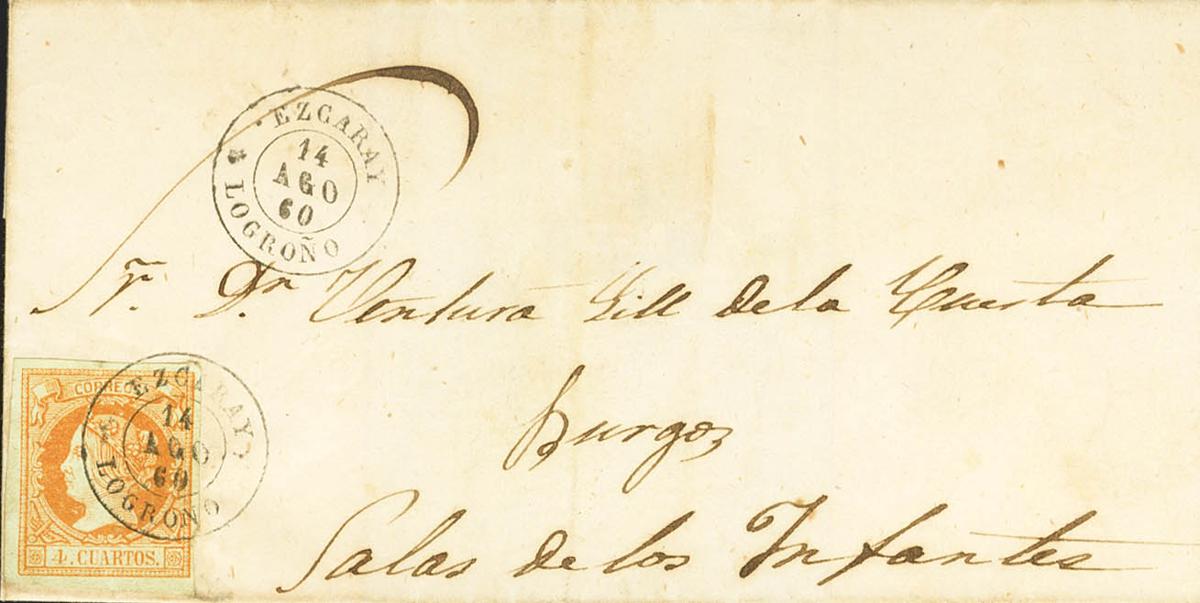 EZCARAY
14
AGO
60
LOGROÑO
Sr. Dn Ventura Gill de la Cuesta
Burgos
Salas de los Infantes
CORREOS
EZCARAY
14
AGO
60
LOGROÑO
4. CUARTOS.